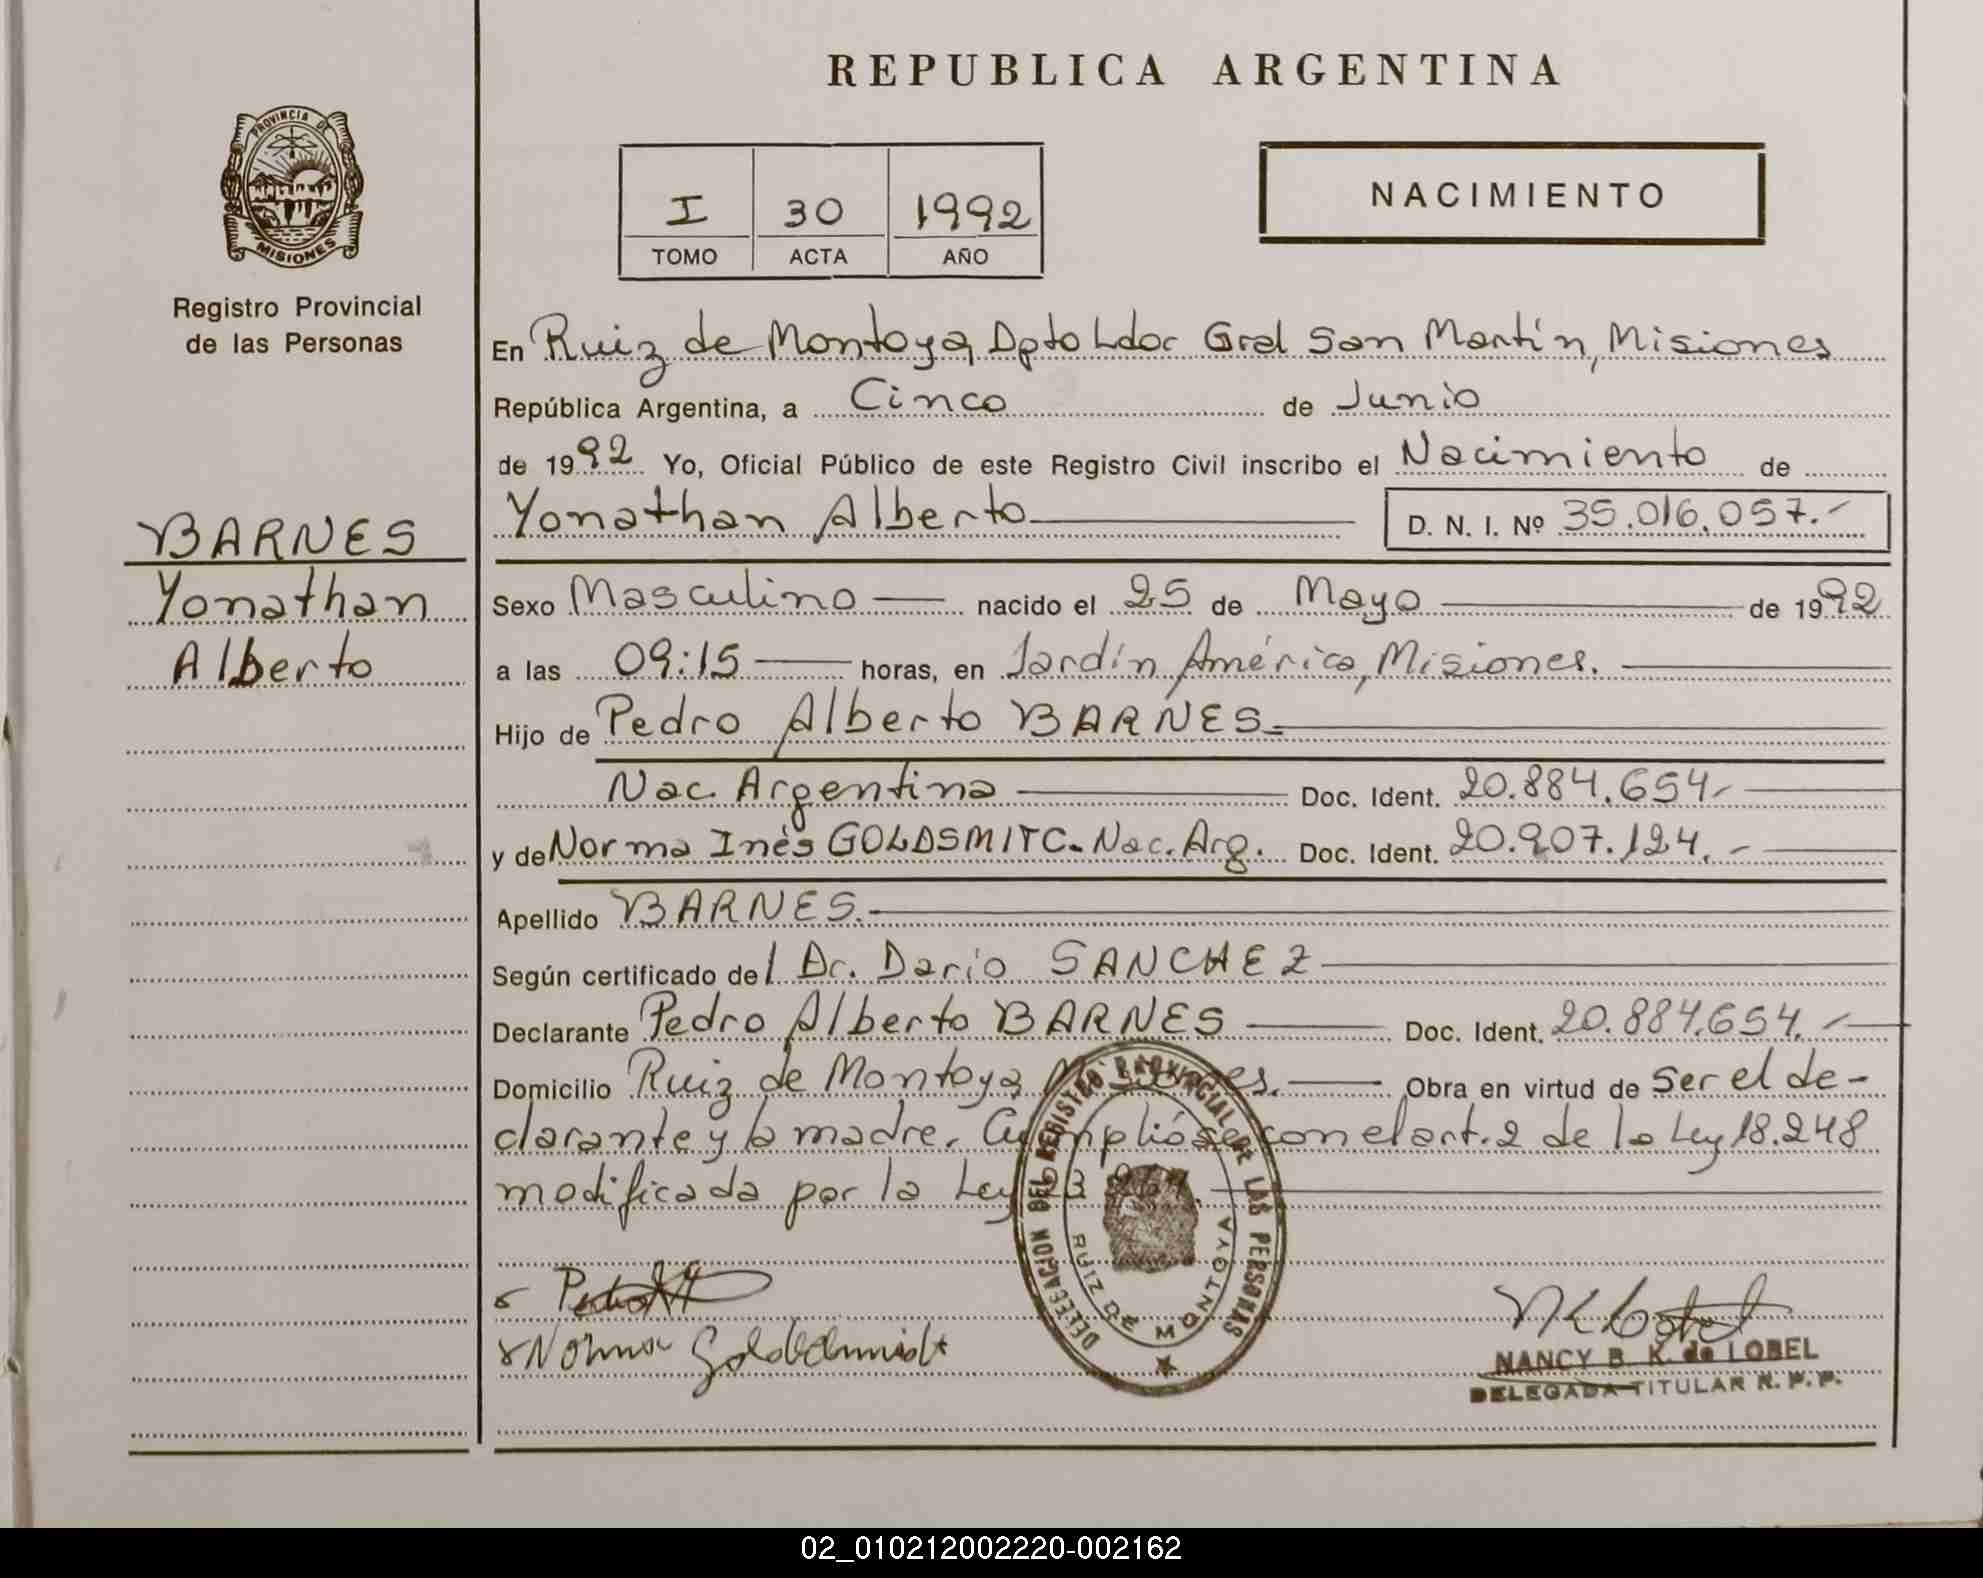 REPUBLICA ARGENTINA
PROVINCIA DE
MISIONES
Registro Provincial
de las Personas
I 30 1992
TOMO ACTA AÑO
NACIMIENTO
BARNES
Yonathan
Alberto
En Ruiz de Montoya, Dpto Ldor Gral San Martín, Misiones
República Argentina, a Cinco de Junio
de 1992 Yo, Oficial Público de este Registro Civil inscribo el Nacimiento de
Yonathan Alberto D. N. I. Nº 35.016.057.-
Sexo Masculino nacido el 25 de Mayo de 1992
a las 09:15 horas, en Jardín América, Misiones.
Hijo de Pedro Alberto BARNES.=
Nac. Argentina Doc. Ident. 20.884.654.-
y de Norma Inés GOLDSMITC. Nac. Arg. Doc. Ident. 20.907.124.-
Apellido BARNES.-
Según certificado del Dr. Dario SANCHEZ
Declarante Pedro Alberto BARNES Doc. Ident. 20.884.654.-
Domicilio Ruiz de Montoya, Misiones. Obra en virtud de ser el de-
clarante y la madre. Cumplióse con el art. 2 de la Ley 18.248
modificada por la Ley 23
DELEGACION DEL REGISTRO PROVINCIAL DE LAS PERSONAS
RUIZ DE MONTOYA
Pedro
Norma Goldschmidt
NANCY B. K. de LOBEL
DELEGADA TITULAR R. P. P.
02_010212002220-002162